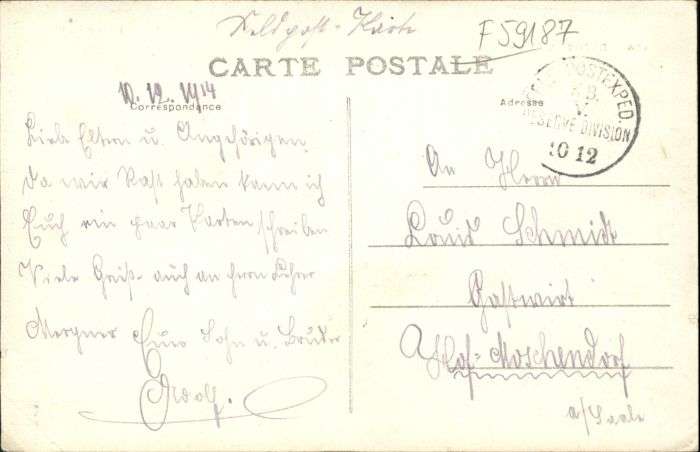 Feldpost-Karte
F59187
CARTE POSTALE
10.12.1914
Correspondance
Adresse
POSTEXPED.
K.B.
V.
RESERVE-DIVISION
10 12
Liebe Eltern u. Angehörigen
Da wir Rast haben kann ich
Euch ein paar Karten schreiben
Viele Grüße auch an Herrn Lehrer
Mergner Euer Sohn u. Bruder
Adolf.
An Herrn
Louis Schmidt
Gastwirt
Hof-Moschendorf
a/Saale